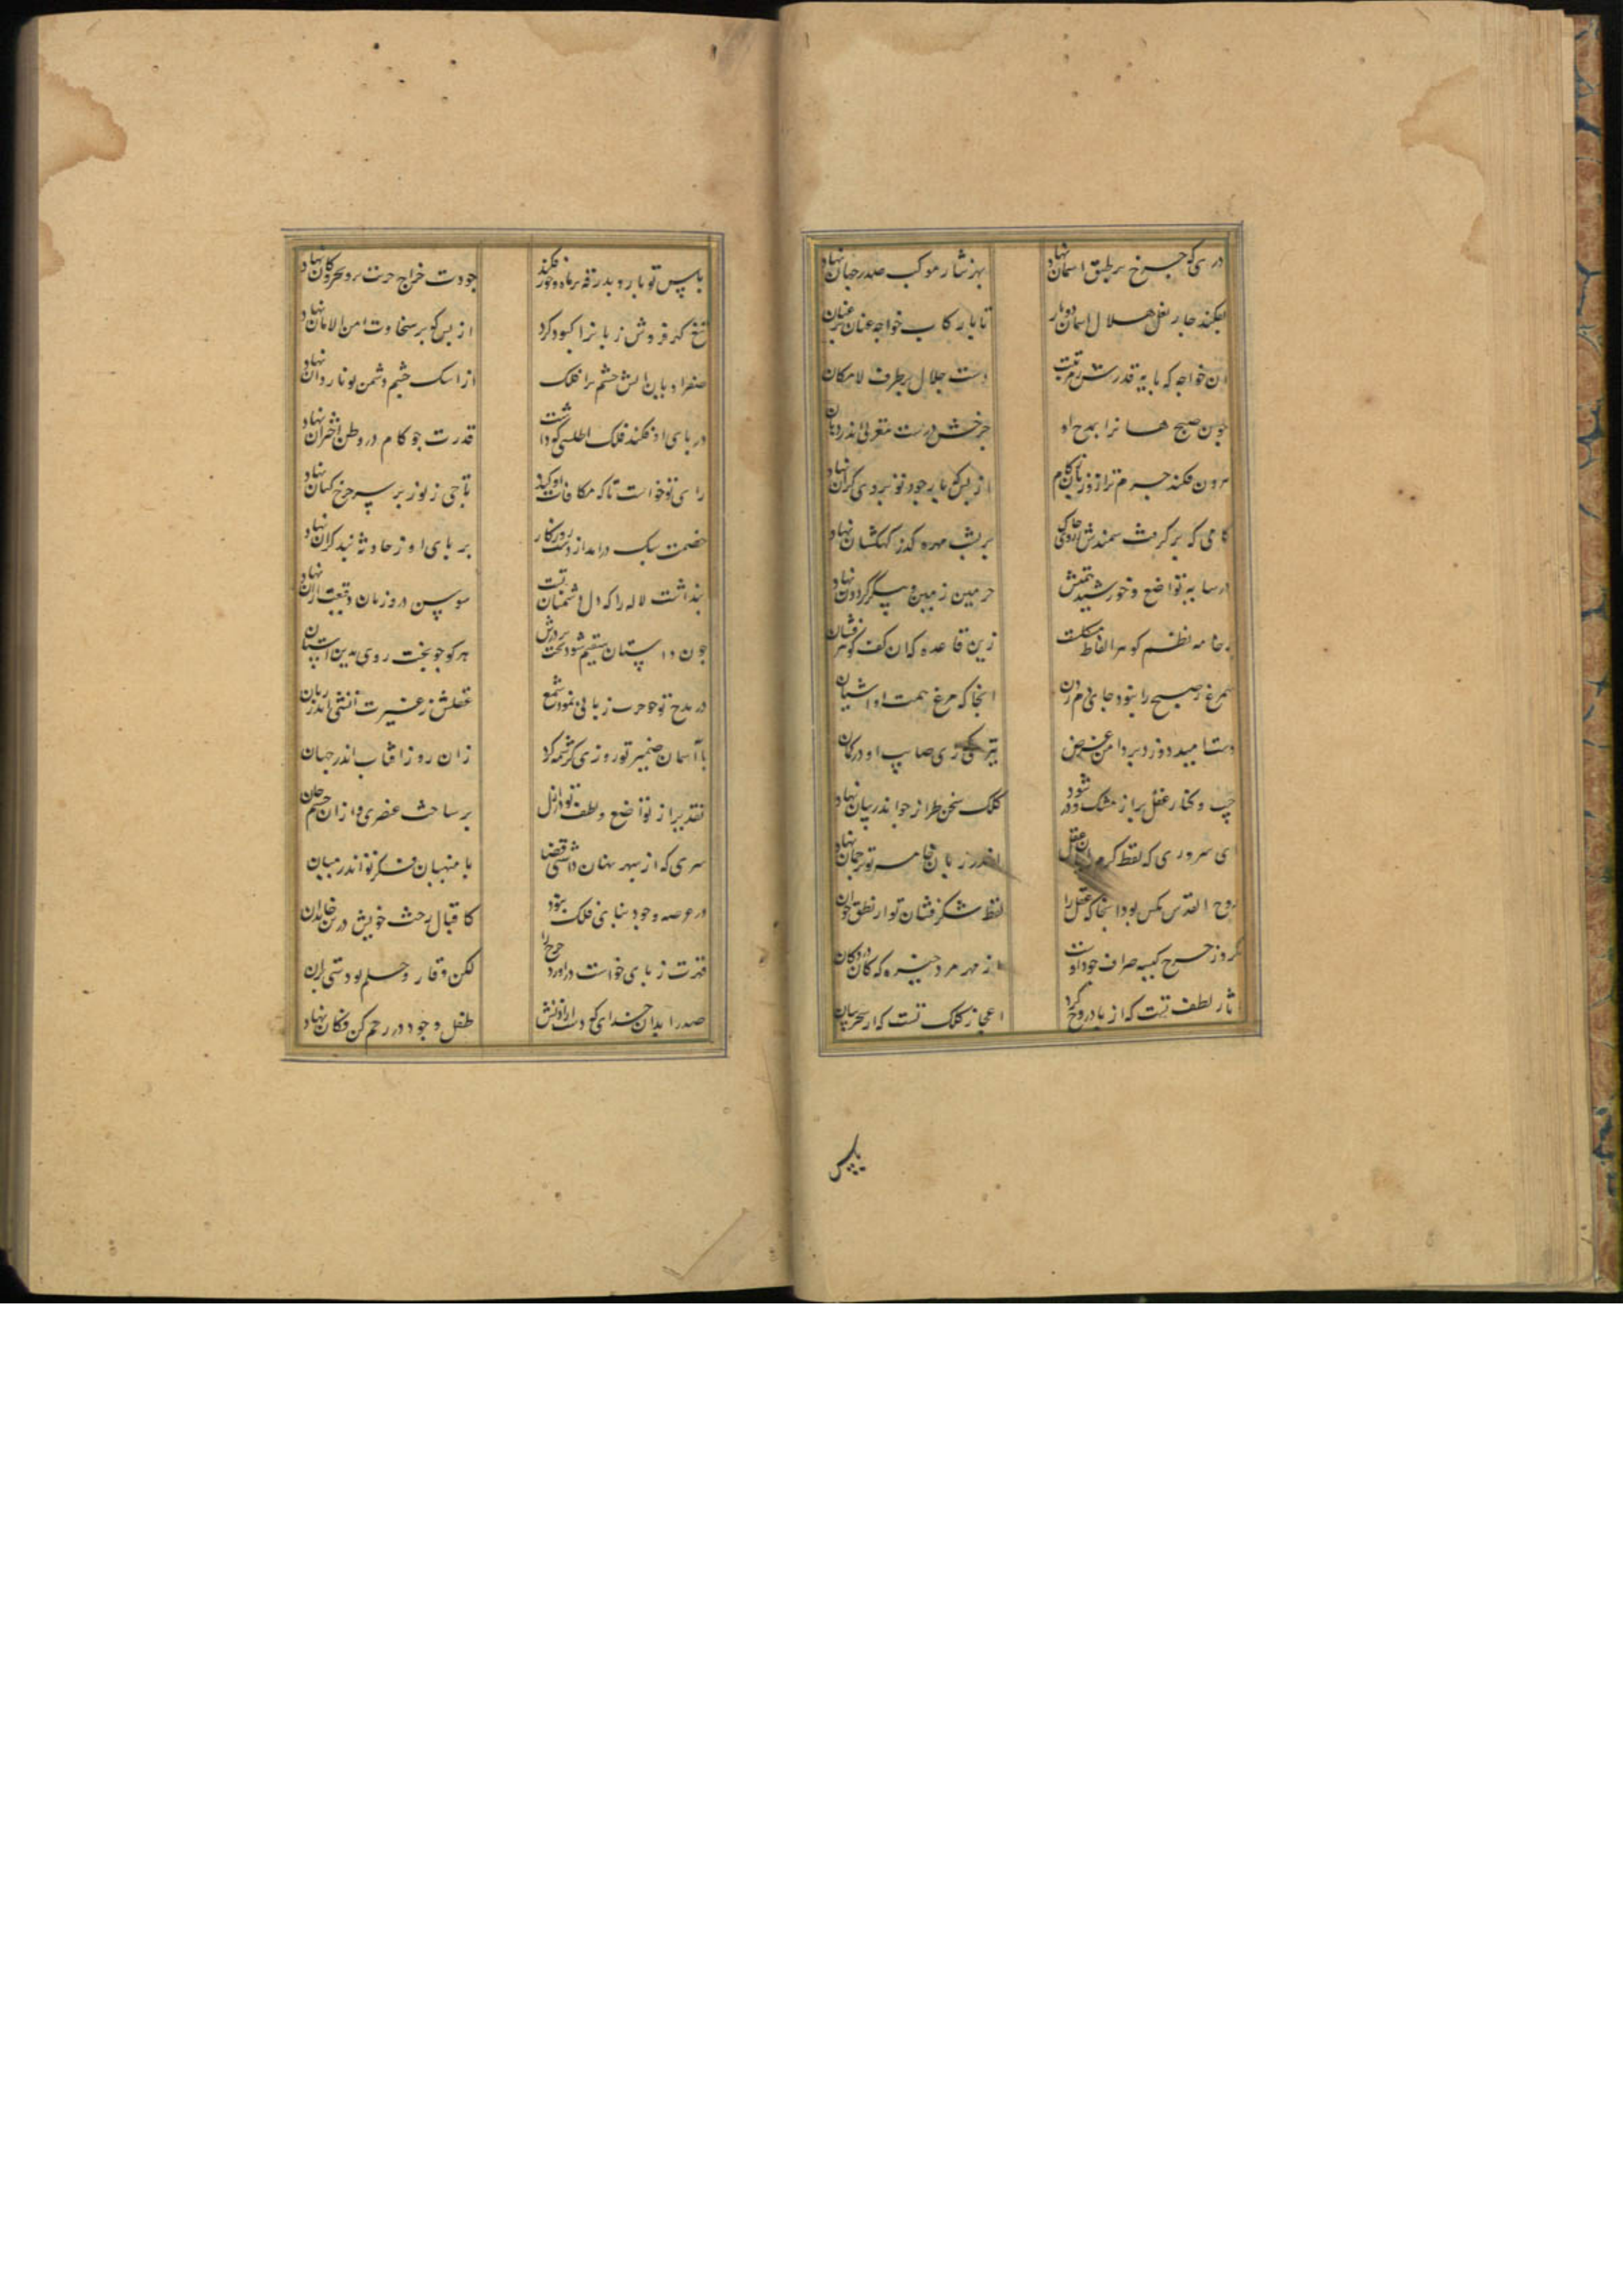 دری که چرخ بر طبق اسمان نهاد بهر نثار موکب صدر جهان نهاد
بفکند جار نعل هلال اسمان دوبار تا با رکاب خواجه عنان بر عنان
ان خواجه که بایه قدرش ز مرتبت دست جلال بر طرف لامکان
جون صبح هر انرا بمدح او چرخش درست مغربی اندر دهان
برون فکند جرم ترازو زبان ز کام از بس که بار جود تو بر وی کران نهاد
کامی که بر کرفت سمندش بر بشت مهره کذر کهکشان نهاد
در سایه تواضع و خورشید جرمین زمین و بیکر کردون نهاد
خامه نظم کوهر الفاظ زین قاعده که ان کف کوهر فشان
سیمرغ صبح را نبود جای دم زدن انجا که مرغ همت او اشیان
دست امید دوزد بر دامن غرض تیری که رای صایب او در کمان
جیب و کنار عقل بر از مشک و در شود کلک سخن طراز جو اندر بیان نهاد
ای سروری که لفظ کرم اندر زبان خامه تو ترجمان نهاد
روح القدس مکس بود انجا که عقل را لفظ شکر فشان تو از نطق خوان
کروز چرخ کیسه صراف جود اوست از مهر مرد خیره که کان در دکان
ثار لطف تست که از باد روح کرد اعجاز کلک تست که از سحر بیان
باس
باس تو بار و بدرقه بر ماه و خور فکند جودت خراج حرث بر و بحر و کان نهاد
تیغ کهر فروش زبانرا کبود کرد از بس که بر سخاوت امن الامان نهاد
صفرا دیان الش خشم ترا فلک از اشک جشم دشمن تو ناردان نهاد
در بای او فکند فلک اطلسی که داشت قدرت جو کام در وطن اختران نهاد
رای تو خواست تا که مکافات او کند تاجی ز نور بر سر جرخ کیان نهاد
خصمت سبک درامد از دست روزکار بر بای او ز حادثه بند کران نهاد
بنداشت لاله را که دل دشمنان تست سوسن در و زمان و قبیعت نهاد
جون داستان مقیم شود بخت بر درش هر کو جو بخت روی بدین استان
در مدح تو جو جرب زبانی نمود شمع عقلش ز غیرت اتشی اندر زبان
با آسمان ضمیر تو روزی کرشمه کرد زان روز افتاب اندر جهان
تقدیر از تواضع و لطف تو در ازل بر ساخت عنصری و ازان جسم جان
سری که از سبهر نهان داشتی قضا با منهیان فکر تو اندر میان
در عرصه وجود بنا بی فلک نبود کاقبال رخت خویش درین خاندان
قدرت ز بای خواست دراورد جرخ را لکن وقار و حلم تو دستی بران
صدرا بدان خدای که دست ارادتش طفل وجود در رحم کن فکان نهاد